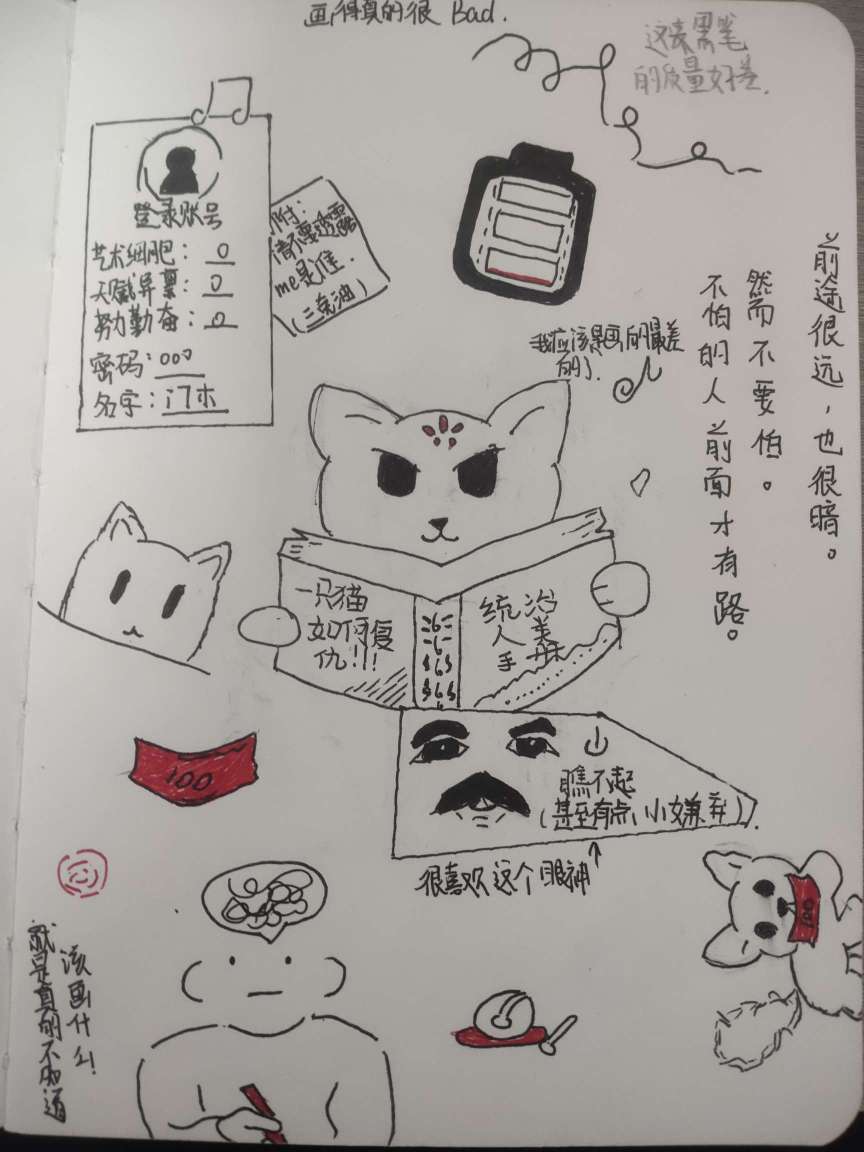 画得真的很 Bad.
这表黑笔
的质量好差.
登录账号
艺术细胞：0
天赋异禀：0
努力勤奋：0
密码：000
名字：门木
附：
请不要透露
me是谁.
(三克油)
我应该是画的最差
的了.
前途很远，也很暗。
然而不要怕。
不怕的人前面才有路。
一只猫
如何复
仇!!!
统治
人类
手册
100
瞧不起
(甚至有点小嫌弃).
很喜欢这个眼神
100
就是真的不知道
该画什么!